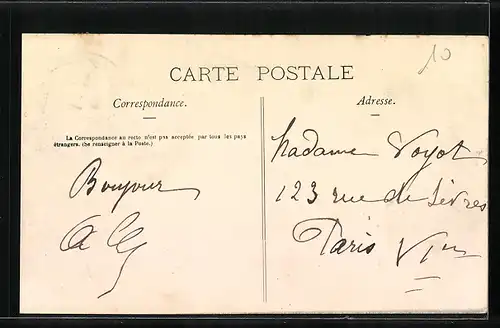 10
CARTE POSTALE
Correspondance.
La Correspondance au recto n'est pas acceptée par tous les pays
étrangers. (Se renseigner à la Poste.)
Bonjour
Adresse.
Madame Voyot
123 rue de Sèvres
Paris VIme